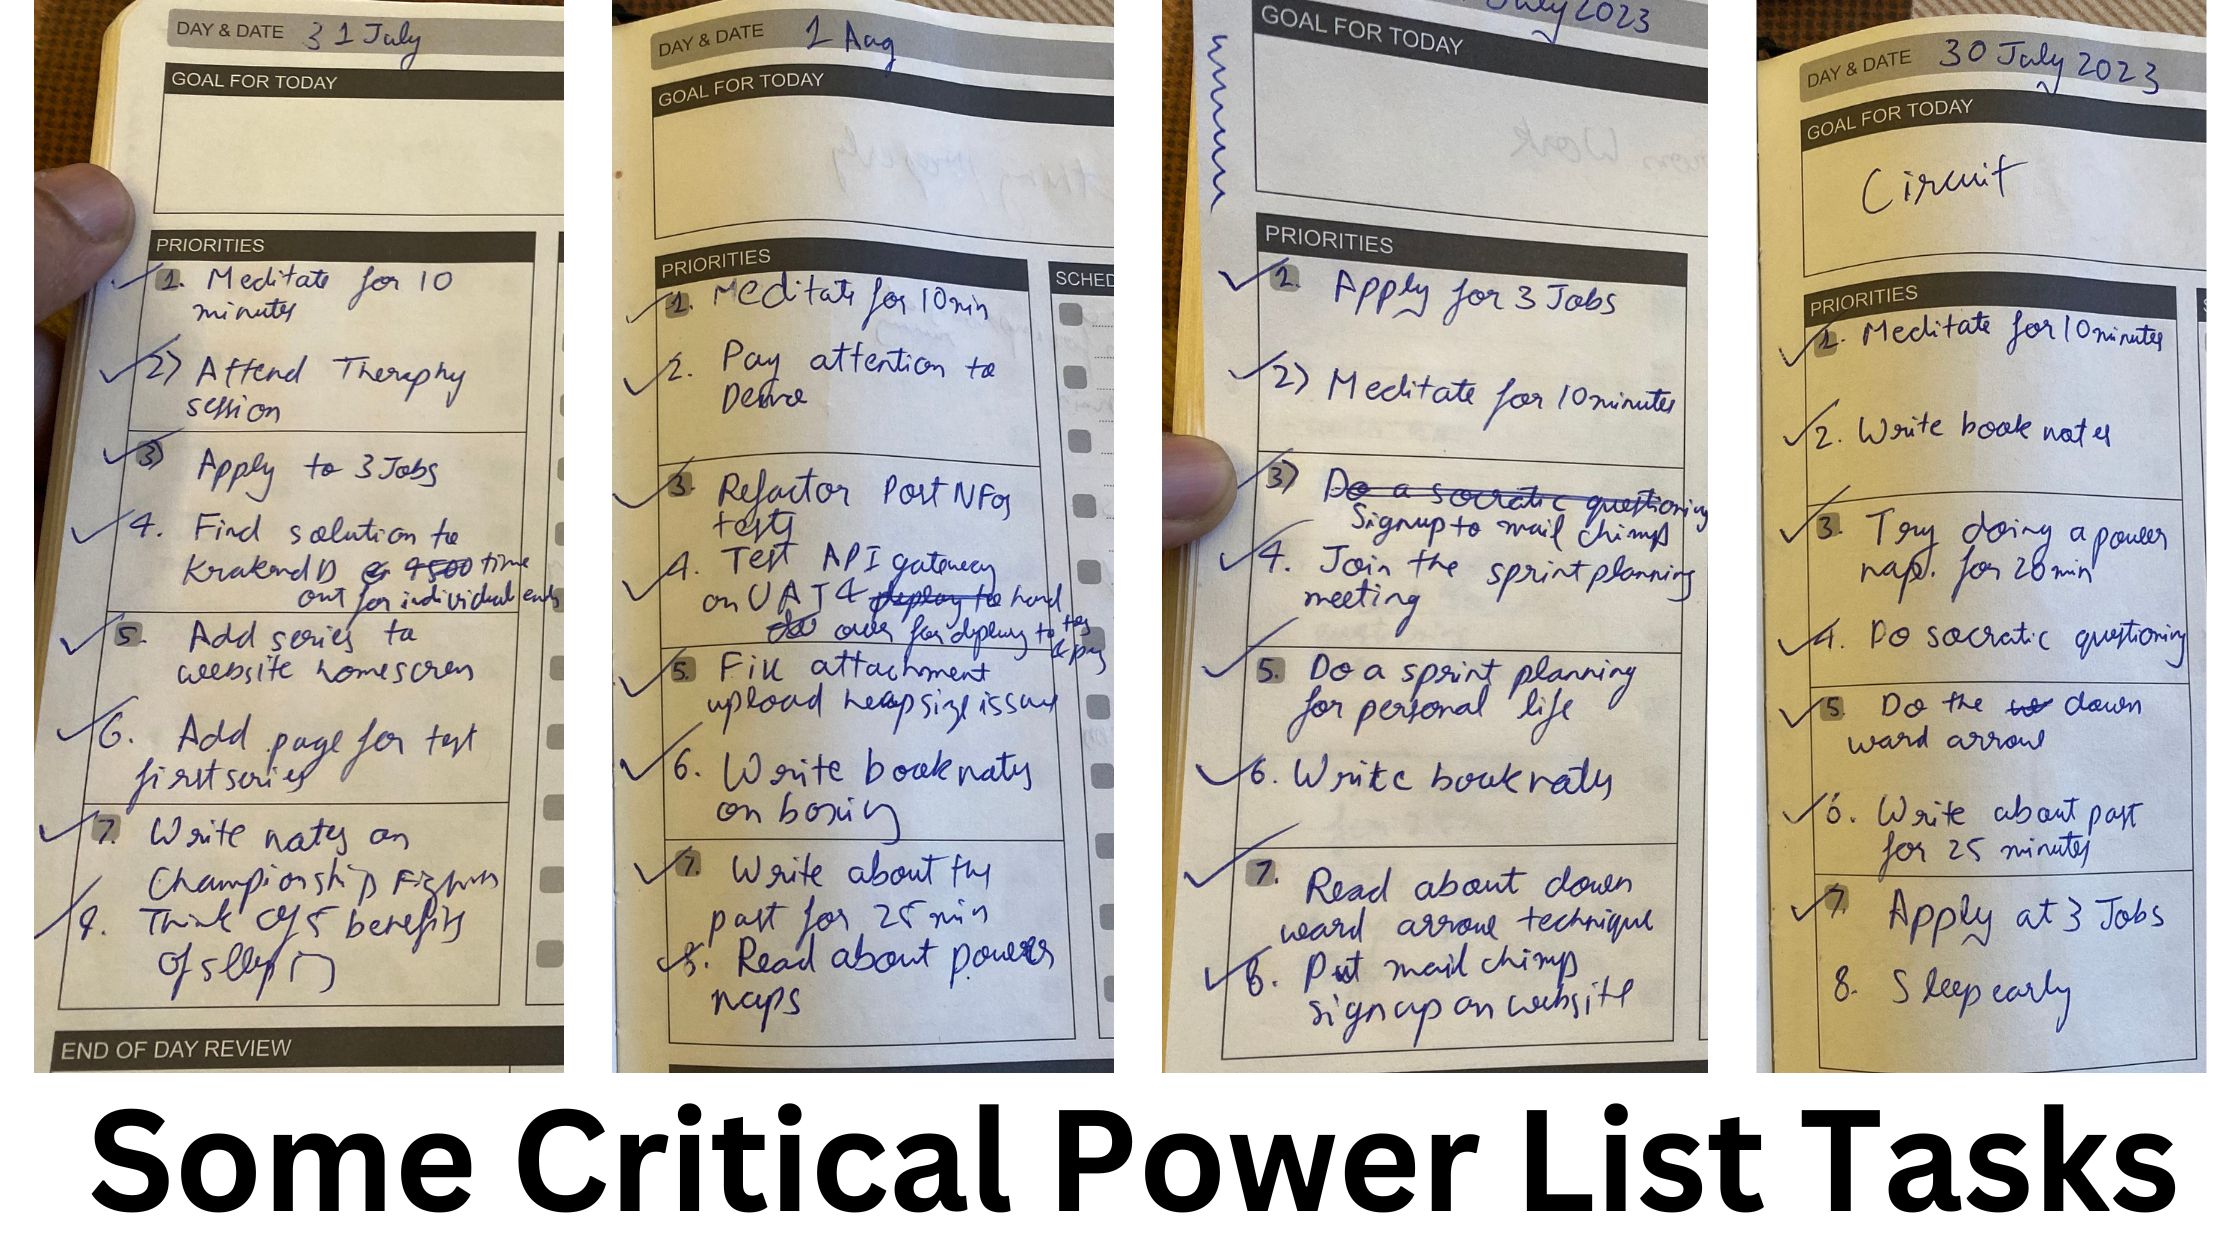 DAY & DATE 31 July
GOAL FOR TODAY
PRIORITIES
1. Meditate for 10
minutes
2) Attend Theraphy
session
3) Apply to 3 Jobs
4. Find solution to
KrakendD time
out for individual ends
5. Add series to
website homescreen
6. Add page for test
first series
7. Write notes on
Championship Fighting
8. Think of 5 benefits
of sleeping
END OF DAY REVIEW
DAY & DATE 1 Aug
GOAL FOR TODAY
PRIORITIES
SCHED
1. Meditate for 10 min
2. Pay attention to
3. Refactor Post NFOs
tests
4. Test API gateway
on UAT & deploy to hand
over for deploy to
5. Fix attachment
upload heap size issue
6. Write book notes
on boxing
7. Write about the
past for 25 min
8. Read about power
naps
July 2023
GOAL FOR TODAY
PRIORITIES
1. Apply for 3 Jobs
2) Meditate for 10 minutes
3) Do a socratic questioning
Signup to mail chimp
4. Join the sprint planning
meeting
5. Do a sprint planning
for personal life
6. Write book notes
7. Read about down
ward arrow technique
8. Put mail chimp
signup on website
DAY & DATE 30 July 2023
GOAL FOR TODAY
Circuit
PRIORITIES
1. Meditate for 10 minutes
2. Write book notes
3. Try doing a power
nap. for 20 min
4. Do socratic questioning
5. Do the down
ward arrow
6. Write about past
for 25 minutes
7. Apply at 3 Jobs
8. Sleep early
Some Critical Power List Tasks